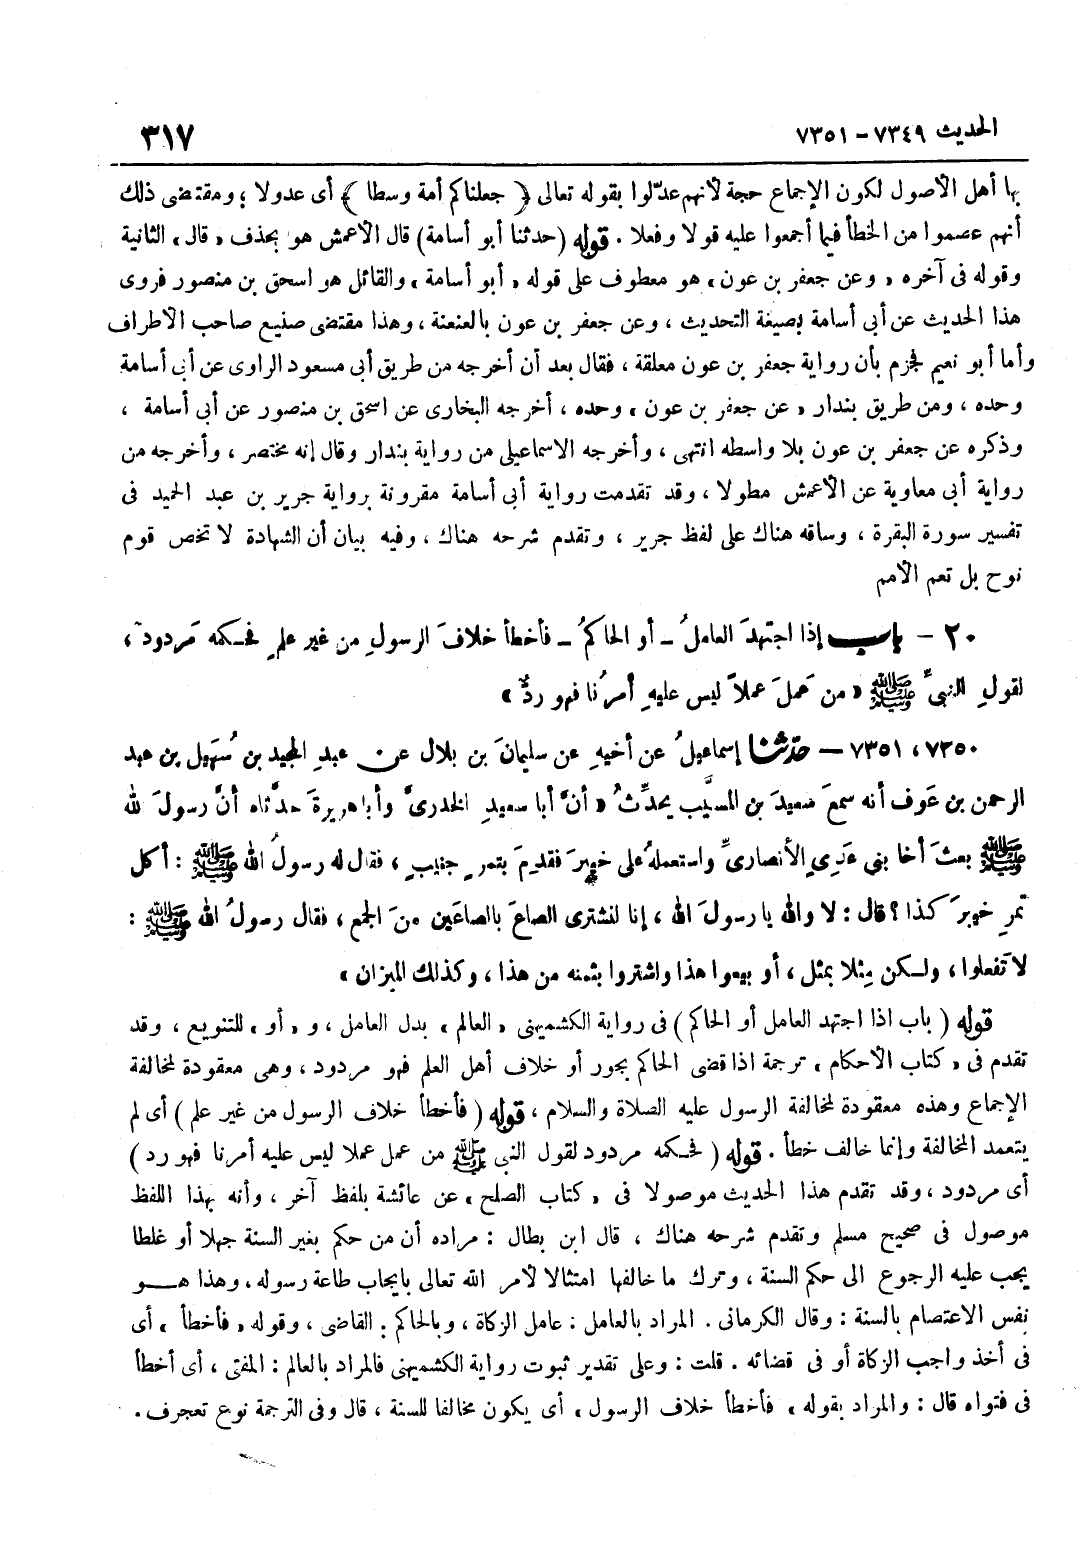 الحديث ٧٣٤٩ - ٧٣٥١
٣١٧
بها أهل الأصول لكون الإجماع حجة لأنهم عدّلوا بقوله تعالى ﴿ جعلناكم أمة وسطا ﴾ أى عدولا ؛ ومقتضى ذلك
أنهم عصموا من الخطأ فيما أجمعوا عليه قولا وفعلا . قوله (حدثنا أبو أسامة) قال الأعمش هو بحذف « قال » الثانية
وقوله فى آخره « وعن جعفر بن عون » هو معطوف على قوله « أبو أسامة » والقائل هو اسحق بن منصور فروى
هذا الحديث عن أبى أسامة بصيغة التحديث ، وعن جعفر بن عون بالعنعنة ، وهذا مقتضى صنيع صاحب الأطراف
وأما أبو نعيم فجزم بأن رواية جعفر بن عون معلقة ، فقال بعد أن أخرجه من طريق أبى مسعود الراوى عن أبى أسامة
وحده ، ومن طريق بندار « عن جعفر بن عون » وحده ، أخرجه البخارى عن اسحق بن منصور عن أبى أسامة ،
وذكره عن جعفر بن عون بلا واسطه انتهى ، وأخرجه الاسماعيلى من رواية بندار وقال إنه مختصر ، وأخرجه من
رواية أبى معاوية عن الأعمش مطولا ، وقد تقدمت رواية أبى أسامة مقرونة برواية جرير بن عبد الحميد فى
تفسير سورة البقرة ، وساقه هناك على لفظ جرير ، وتقدم شرحه هناك ، وفيه بيان أن الشهادة لا تخص قوم
نوح بل تعم الأمم
٢٠ - باب إذا اجتهدَ العاملُ - أو الحاكمُ - فأخطأ خلافَ الرسولِ من غير علمٍ فحكمه مَردود ،
لقولِ النبىِّ ﷺ « من عَملَ عملاً ليس عليهِ أمرُنا فهو ردٌّ »
٧٣٥٠ ، ٧٣٥١ - حدّثنا إسماعيلُ عن أخيهِ عن سليمانَ بن بلال عن عبدِ المجيد بن سُهَيل بن عبد
الرحمن بن عَوف أنه سمعَ سعيدَ بن المسيَّب يحدِّثُ « أنَّ أبا سعيدٍ الخدرىَّ وأبا هريرةَ حدَّثاه أنَّ رسولَ لله
ﷺ بعثَ أخا بنى عَدِي الأنصارىِّ واستعملهُ على خَيبرَ فقدِمَ بتمرٍ جنيبٍ ، فقال له رسولُ الله ﷺ : أكل
تمرِ خيبرَ كذا ؟ قال : لا والله يا رسولَ الله ، إنا لنشترى الصاعَ بالصاعَين منَ الجمع ، فقال رسولُ الله ﷺ :
لا تَفعلوا ، ولكن مِثلا بمثل ، أو بيعوا هذا واشتروا بثمنه من هذا ، وكذلك الميزان »
قوله ( باب اذا اجتهد العامل أو الحاكم ) فى رواية الكشميهنى « العالم » بدل العامل ، و « أو » للتنويع ، وقد
تقدم فى « كتاب الأحكام » ترجمة اذا قضى الحاكم بجور أو خلاف أهل العلم فهو مردود ، وهى معقودة لمخالفة
الإجماع وهذه معقودة لمخالفة الرسول عليه الصلاة والسلام ، قوله ( فأخطأ خلاف الرسول من غير علم ) أى لم
يتعمد المخالفة وإنما خالف خطأ . قوله ( فحكمه مردود لقول النبى ﷺ من عمل عملا ليس عليه أمرنا فهو رد )
أى مردود ، وقد تقدم هذا الحديث موصولا فى « كتاب الصلح » عن عائشة بلفظ آخر ، وأنه بهذا اللفظ
موصول فى صحيح مسلم وتقدم شرحه هناك ، قال ابن بطال : مراده أن من حكم بغير السنة جهلا أو غلطا
يجب عليه الرجوع الى حكم السنة ، وترك ما خالفها امتثالا لأمر الله تعالى بايجاب طاعة رسوله ، وهذا هو
نفس الاعتصام بالسنة : وقال الكرمانى . المراد بالعامل : عامل الزكاة ، وبالحاكم : القاضى ، وقوله « فأخطأ » أى
فى أخذ واجب الزكاة أو فى قضائه . قلت : وعلى تقدير ثبوت رواية الكشميهنى فالمراد بالعالم : المفتى ، أى أخطأ
فى فتواه قال : والمراد بقوله « فأخطأ خلاف الرسول » أى يكون مخالفا للسنة ، قال وفى الترجمة نوع تعجرف .